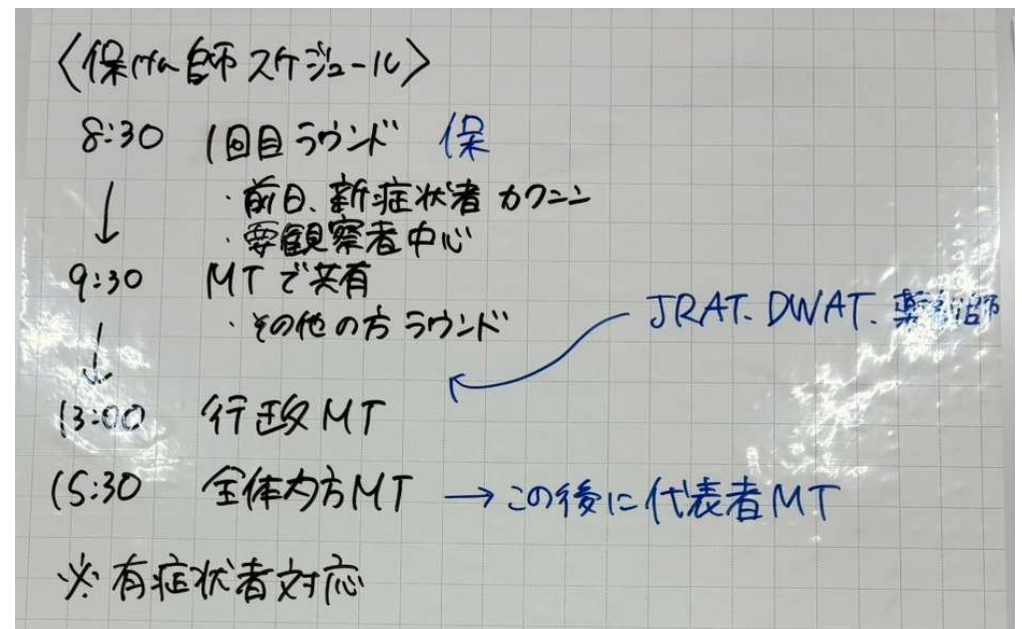 〈保けん師スケジュール〉
8:30 1回目ラウンド 保
・前日、新症状者 カクニン
・要観察者中心
9:30 MTで共有
・その他の方ラウンド
JRAT. DWAT. 薬剤師
13:00 行政MT
15:30 全体夕方MT → この後に代表者MT
※有症状者対応